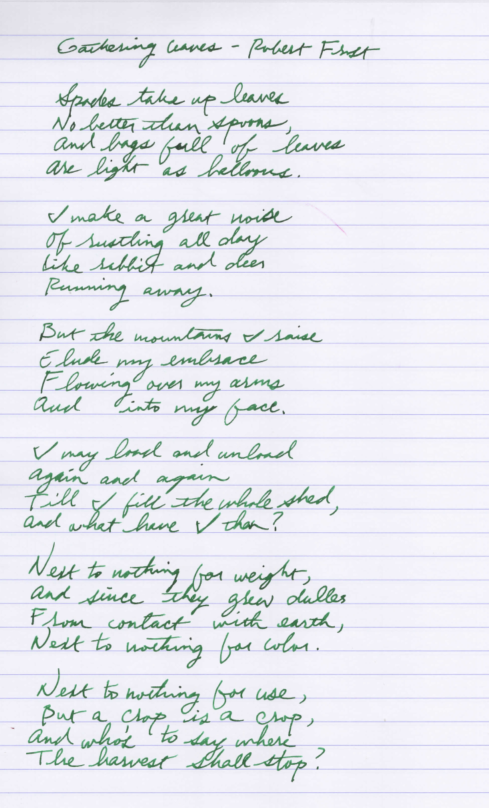 Gathering Leaves - Robert Frost
Spades take up leaves
No better than spoons,
And bags full of leaves
Are light as balloons.
I make a great noise
Of rustling all day
Like rabbit and deer
Running away.
But the mountains I raise
Elude my embrace
Flowing over my arms
And into my face.
I may load and unload
Again and again
Till I fill the whole shed,
And what have I then?
Next to nothing for weight,
And since they grew duller
From contact with earth,
Next to nothing for color.
Next to nothing for use,
But a crop is a crop,
And who's to say where
The harvest shall stop?